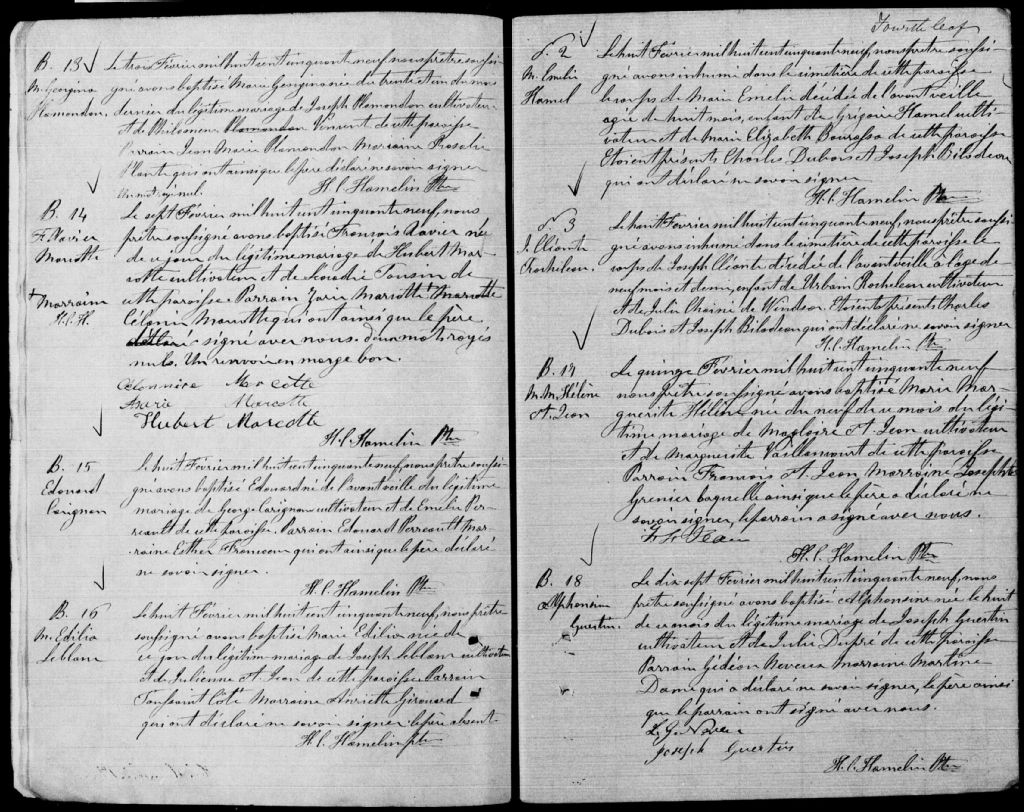 B. 13
M. Georgina
Plamondon.
Le trois Février mil huit cent cinquante neuf, nous prêtre soussi-
gné avons baptisé Marie Georgina née du trente et un du mois
dernier du légitime mariage de Joseph Plamondon cultivateur
et de Philomène Plamondon Vincent de cette paroisse
Parrain Jean Marie Plamondon Marraine Rosalie
Plante qui ont ainsi que le père déclaré ne savoir signer
Un mot rayé nul.
H. C. Hamelin Ptre
B. 14
Fr. Xavier
Marcotte
Le sept Février mil huit cent cinquante neuf, nous
prêtre soussigné avons baptisé François Xavier né
de ce jour du légitime mariage de Hubert Mar-
cotte cultivateur et de Toussin de
cette paroisse Parrain Marcotte Marcotte
+ Marraine
H. C. H.
Marcotte qui ont ainsi que le père
signé avec nous. mots rayés
nuls. Un renvoi en marge bon.
Marcotte
Marie Marcotte
Hubert Marcotte
H. C. Hamelin Ptre
B. 15
Edouard
Carignan
Le huit Février mil huit cent cinquante neuf, nous prêtre soussi-
gné avons baptisé Edouard né de l'avant veille du légitime
mariage de George Carignan cultivateur et de Emelie Per-
reault de cette paroisse. Parrain Edouard Perreault Mar-
raine Esther Francoeur qui ont ainsi que le père déclaré
ne savoir signer.
H. C. Hamelin Ptre
B. 16
M. Edilia
Leblanc
Le huit Février mil huit cent cinquante neuf, nous prêtre
soussigné avons baptisé Marie Edilia née de
ce jour du légitime mariage de Joseph Leblanc cultivateur
et de Julienne St Jean de cette paroisse Parrain
Toussaint Côté Marraine Henriette Girouard
qui ont déclaré ne savoir signer le père absent
H. C. Hamelin Ptre
Fourth leaf
S. 2
M. Emelie
Hamel
Le huit Février mil huit cent cinquante neuf, nous prêtre soussi-
gné avons inhumé dans le cimetière de cette paroisse
le corps de Marie Emelie décédée de l'avant veille
agée de huit mois, enfant de Grégoire Hamel culti-
vateur et de Marie Elizabeth Bourassa de cette paroisse
Etoient présents Charles Dubois et Joseph Bilodeau
qui ont déclaré ne savoir signer
H. C. Hamelin Ptre
S. 3
J. Cléante
Rocheleau.
Le huit Février mil huit cent cinquante neuf, nous prêtre soussi-
gné avons inhumé dans le cimetière de cette paroisse le
corps de Joseph Cléante décédé de l'avant veille à l'age de
neuf mois et demi, enfant de Urbain Rocheleau cultivateur
et de Julie Chainé de Windsor. Etoient présents Charles
Dubois et Joseph Bilodeau qui ont déclaré ne savoir signer
H. C. Hamelin Ptre
B. 17
M. M. Hélène
St Jean
Le quinze Février mil huit cent cinquante neuf
nous prêtre soussigné avons baptisé Marie Mar-
guerite Hélène née du neuf de ce mois du légi-
time mariage de Magloire St Jean cultivateur
et de Marguerite Vaillancourt de cette paroisse
Parrain François St Jean Marraine Josephte
Grenier laquelle ainsi que le père a déclaré ne
savoir signer, le parrain a signé avec nous.
Fr St Jean
H. C. Hamelin Ptre
B. 18
Alphonsine
Guertin.
Le dix sept Février mil huit cent cinquante neuf, nous
prêtre soussigné avons baptisé Alphonsine née le huit
de ce mois du légitime mariage de Joseph Guertin
cultivateur et de Julie Dupré de cette paroisse
Parrain Gédéon Marraine Martine
Dame qui a déclaré ne savoir signer, le père ainsi
que le parrain ont signé avec nous.
Joseph Guertin
H. C. Hamelin Ptre